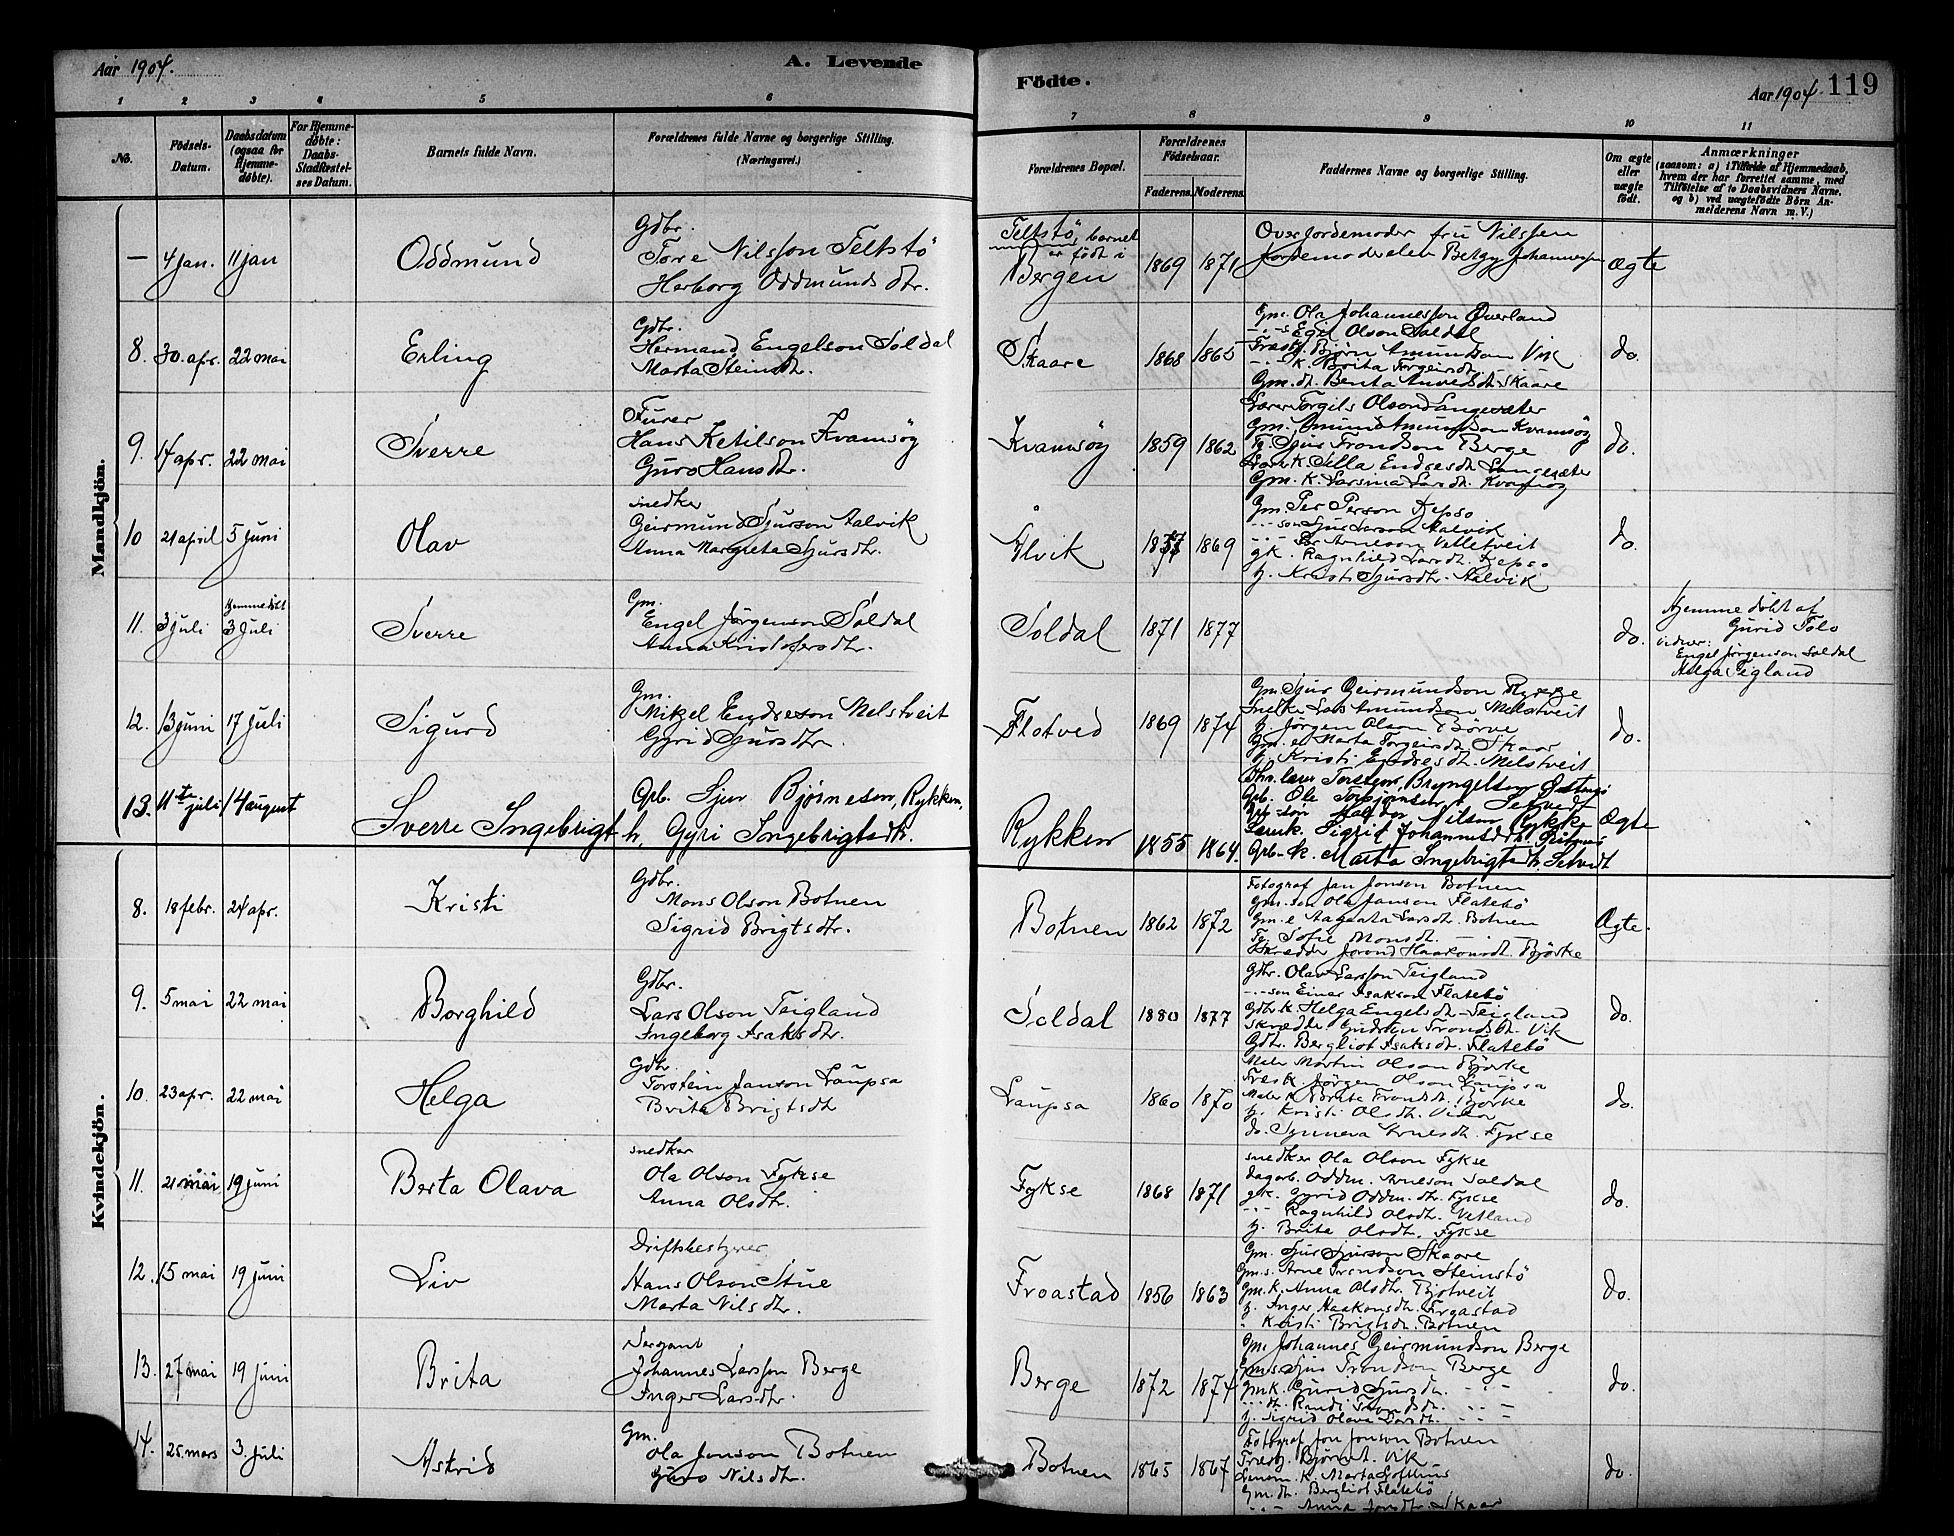 Aar 1904.
A. Levende
Födte.
Aar 1904. 119
1 2 3 4 5 6 7 8 9 10 11
No.
Födsels-Datum.
Daabsdatum (ogsaa for Hjemme-døbte).
For Hjemme-døbte: Daabs-Stadfæstel-ses Datum.
Barnets fulde Navn.
Forældrenes fulde Navne og borgerlige Stilling. (Næringsvei.)
Forældrenes Bopæl.
Forældrenes Födselsaar.
Faderens. Moderens.
Faddernes Navne og borgerlige Stilling.
Om ægte eller uægte födt.
Anmærkninger
(saasom: a) i Tilfælde af Hjemmedaab, hvem der har forrettet samme, med Tilföielse af to Daabsvidners Navne, og b) ved uægtefödte Börn An-melderens Navn m. V.)
Mandkjön.
— 4 jan. 11 jan
Oddmund
Gdbr.
Tore Nilsson Teltstö
Herborg Oddmundsdtr.
Teltstö, barnet
er födt i
Bergen
1869 1871
Overjordemoder fru Nilssen
Jordemoderelev Betzy Johannesen
Ægte
8. 30. apr. 22 mai
Erling
Gdbr.
Hermand Engelson Soldal
Marta Steinsdtr.
Skaare
1868 1865
Gm. Ola Johannesson Överland
Egil Olson Soldal
Björn Amundson Vik
k. Brita Torgeirsdtr.
Gm. dt. Berita Skaare
do.
9. 14 apr. 22 mai
Sverre
Furer
Hans Ketilson Kvamsøy
Guro Hansdtr.
Kvamsøy
1859 1862
Lærer Torgils Olson Langesæter
Gm. Amund Amundson Kvamsøy
Sjur Trondson Berge
Lærerk. Silla Endresdtr. Langesæter
Gm. k. Larsina Larsdtr. Kvamsøy
do.
10 21 april 5 juni
Olav
snedker
Geirmund Sjurson Aalvik
Anna Margreta Sjursdtr.
Ålvik
1869
Gm. Per Person Djepso
son Sjur Larson Aalvik
Arneson Velletveit
gk. Ragnhild Larsdtr. Djepso
p. Kristi Sjursdtr. Aalvik
do.
11. 3 juli Hjemmedöbt 3 juli
Sverre
Gm.
Engel Jörgenson Soldal
Anna Kristofersdtr.
Soldal
1871 1877
do.
Hjemme döbt af
Gurid Tolo
vidner:
Engel Jörgenson Soldal
Helga Teigland
12. 13 juni 17 juli
Sigurd
Gm.
Mikkel Endreson Melstveit
Gyrid Sjursdtr.
Flotved
1869 1874
Gm. Sjur Geirmundson Rykke
Lars Amundson Melstveit
p. Jörgen Olson Börve
Gm. e. Marta Torgeirsdtr. Skaar
p. Kristi Endresdtr. Melstveit
do.
13. 11te juli 14 august
Sverre Ingebrigt
Grb. Sjur Bjørneson, Rykken,
h. Gyri Ingebrigtsdtr.
Rykken
1855 1864.
lærer Torstein Bryngelson
Grb. Ole Setvedt
Grb.-søn Haldor Nilson Rykke
Lærerk. Sigrid Johannesdtr.
Grb.-k. Marta Ingebrigtsdtr. Setvedt
Ægte
Kvindekjön.
8. 18 febr. 24 apr.
Kristi
Gdbr.
Mons Olson Botnen
Sigrid Brigtsdtr.
Botnen
1862 1872
Fotograf Jan Jonson Botnen
Gm. son Ola Janson Flatebö
Gm. e. Aagaata Larsdtr. Botnen
Tj. Sofie Monsdtr.
Skredder Jorond Haakonsdtr. Björke
Ægte.
9. 5 mai 22 mai
Borghild
Gdbr.
Lars Olson Teigland
Ingeborg Isaksdtr.
Soldal
1880 1877
Gdbr. Olav Larsson Teigland
son Einar Isakson Flatebö
Gdbr. k. Helga Engelsdtr. Teigland
Skrædder Gudrun Trondsdtr. Vik
Gdtr. Bergliot Isaksdtr. Flatebö
do.
10. 23 apr. 22 mai
Helga
Gdbr.
Torstein Janson Laupsa
Brita Brigtsdtr
Laupsa
1860 1870
Maler Martin Olson Björke
Jörgen Olson Laupsa
Maler k. Brita Trondsdtr. Björke
p. Kristi Olsdtr. Vikor
do. Synneva Arnesdtr. Fykse
do.
11. 21 mai 19 juni
Berta Olava
snedker
Ola Olson Fykse
Anna Olsdtr.
Fykse
1868 1871
snedker Ola Olson Fykse
Dagarb. Oddm. Arneson Soldal
gk. Gyrid Oddm.dtr. Fykse
Ragnhild Olsdtr. Vetland
p. Brita Olsdtr. Fykse
do.
12. 15 mai 19 juni
Liv
Driftsbestyrer
Hans Olson Stue
Marta Nilsdtr.
Froastad
1856 1863
Gm. Sjur Sjurson Skaare
Gm. s. Arne Trondson Steinstö
Gm. k. Anna Olsdtr. Bjotveit
p. Inger Haakonsdtr. Froastad
Kristi Brigtsdtr. Botnen
do.
13. 27 mai 19 juni
Brita
Sergant
Johannes Larsson Berge
Inger Larsdtr.
Berge
1872 1874
Gm. Johannes Geirmundson Berge
Gm. s. Sjur Trondson Berge
Gm. k. Gurid Sjursdtr.
dt. Randi Trondsdtr.
p. Sigrid Olava Larsdtr.
do.
14. 25 mars 3 juli
Astrid
Gm.
Ola Jonson Botnen
Guro Nilsdtr.
Botnen
1865 1867
Fotograf Jon Jonson Botnen
Björn A. Vik
k. Marta Lofthus
Gm. dt. Bergliot Flatebö
Anna Jonsdtr. Skaar
do.